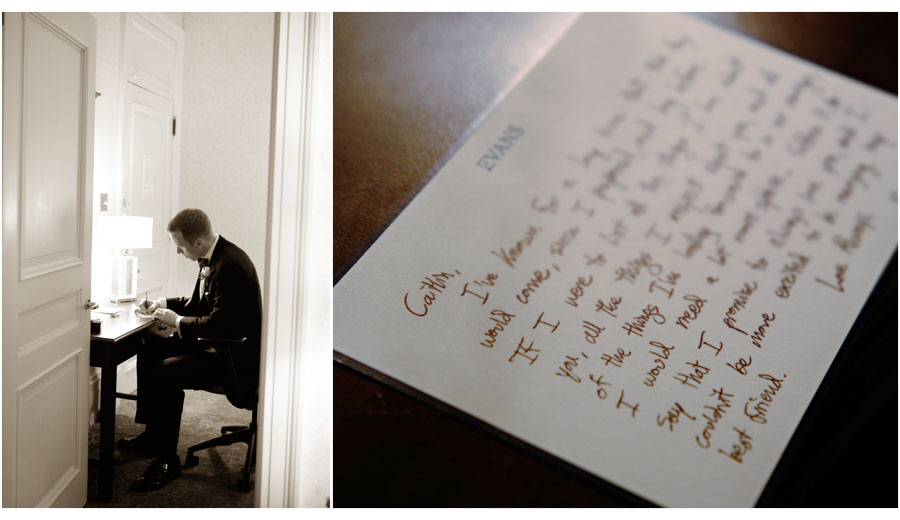 EVANS
Caitlin,
I've known for a long time that this day
would come, since I proposed and long before.
IF I were to list all the things I love about
you, all the things I respect about you, and all
of the things I'm looking forward to in our marriage
I would need a lot more space.
say that I promise to always love you, and I
couldn't be more excited to be marrying my
best friend.
Love Always